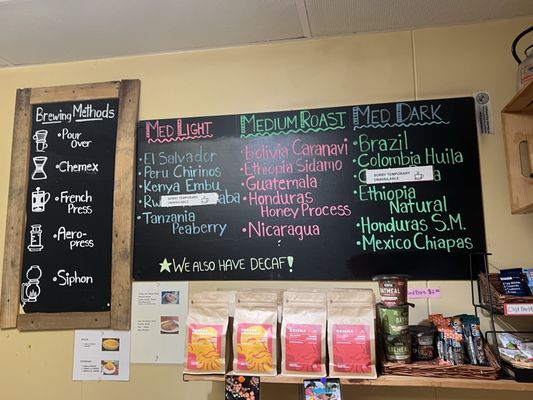 Brewing Methods
Pour
Over
Chemex
French
Press
Aero-
press
Siphon
Med Light
El Salvador
Peru Chirinos
Kenya Embu
SORRY TEMPORARY
UNAVAILABLE
Tanzania
Peaberry
Medium Roast
Bolivia Caranavi
Ethiopia Sidamo
Guatemala
Honduras
Honey Process
Nicaragua
Med Dark
Brazil
Colombia Huila
SORRY TEMPORARY
UNAVAILABLE
Ethiopia
Natural
Honduras S.M.
Mexico Chiapas
We also have decaf!
OATMEAL